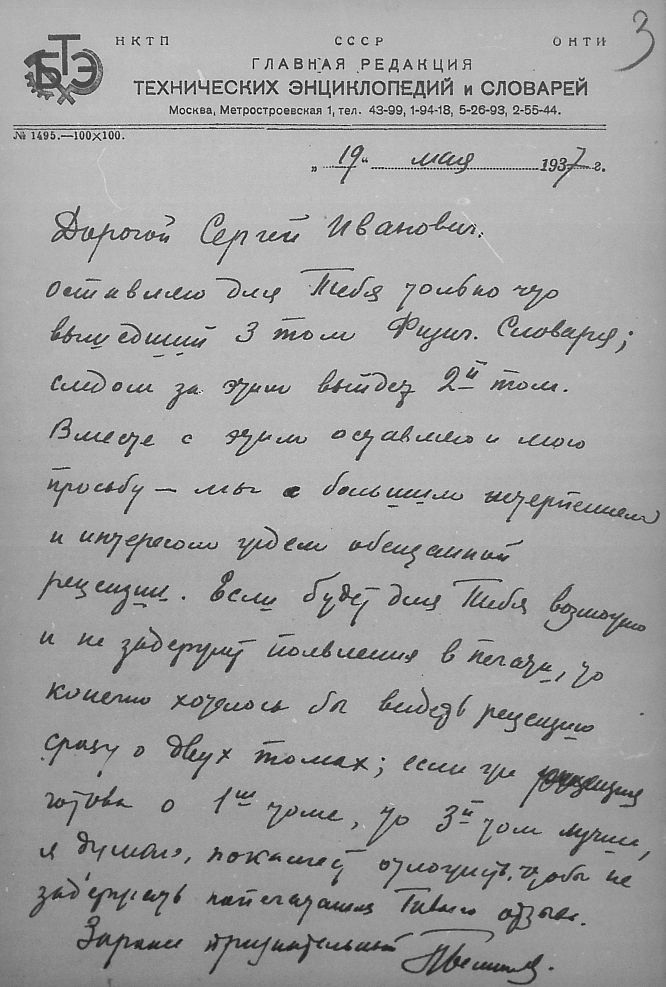 3
БТЭ
НКТП СССР ОНТИ
ГЛАВНАЯ РЕДАКЦИЯ
ТЕХНИЧЕСКИХ ЭНЦИКЛОПЕДИЙ и СЛОВАРЕЙ
Москва, Метростроевская 1, тел. 43-99, 1-94-18, 5-26-93, 2-55-44.
№ 1495.—100×100.
„ 19 “ мая 1937 г.
Дорогой Сергей Иванович.
Оставляю для Тебя только что
вышедший 3 том Физич. Словаря;
следом за этим выйдет 2й том.
Вместе с этим оставляю и мою
просьбу — мы с большим нетерпением
и интересом ждем обещанной
рецензии. Если будет для Тебя возможно
и не задержит появления в печати, то
конечно хотелось бы видеть рецензию
сразу о двух томах; если же рецензия
готова о 1ом томе, то 3й том лучше,
я думаю, пока отложить, чтобы не
задержать напечатания Твоего отзыва.
Заранее признательный